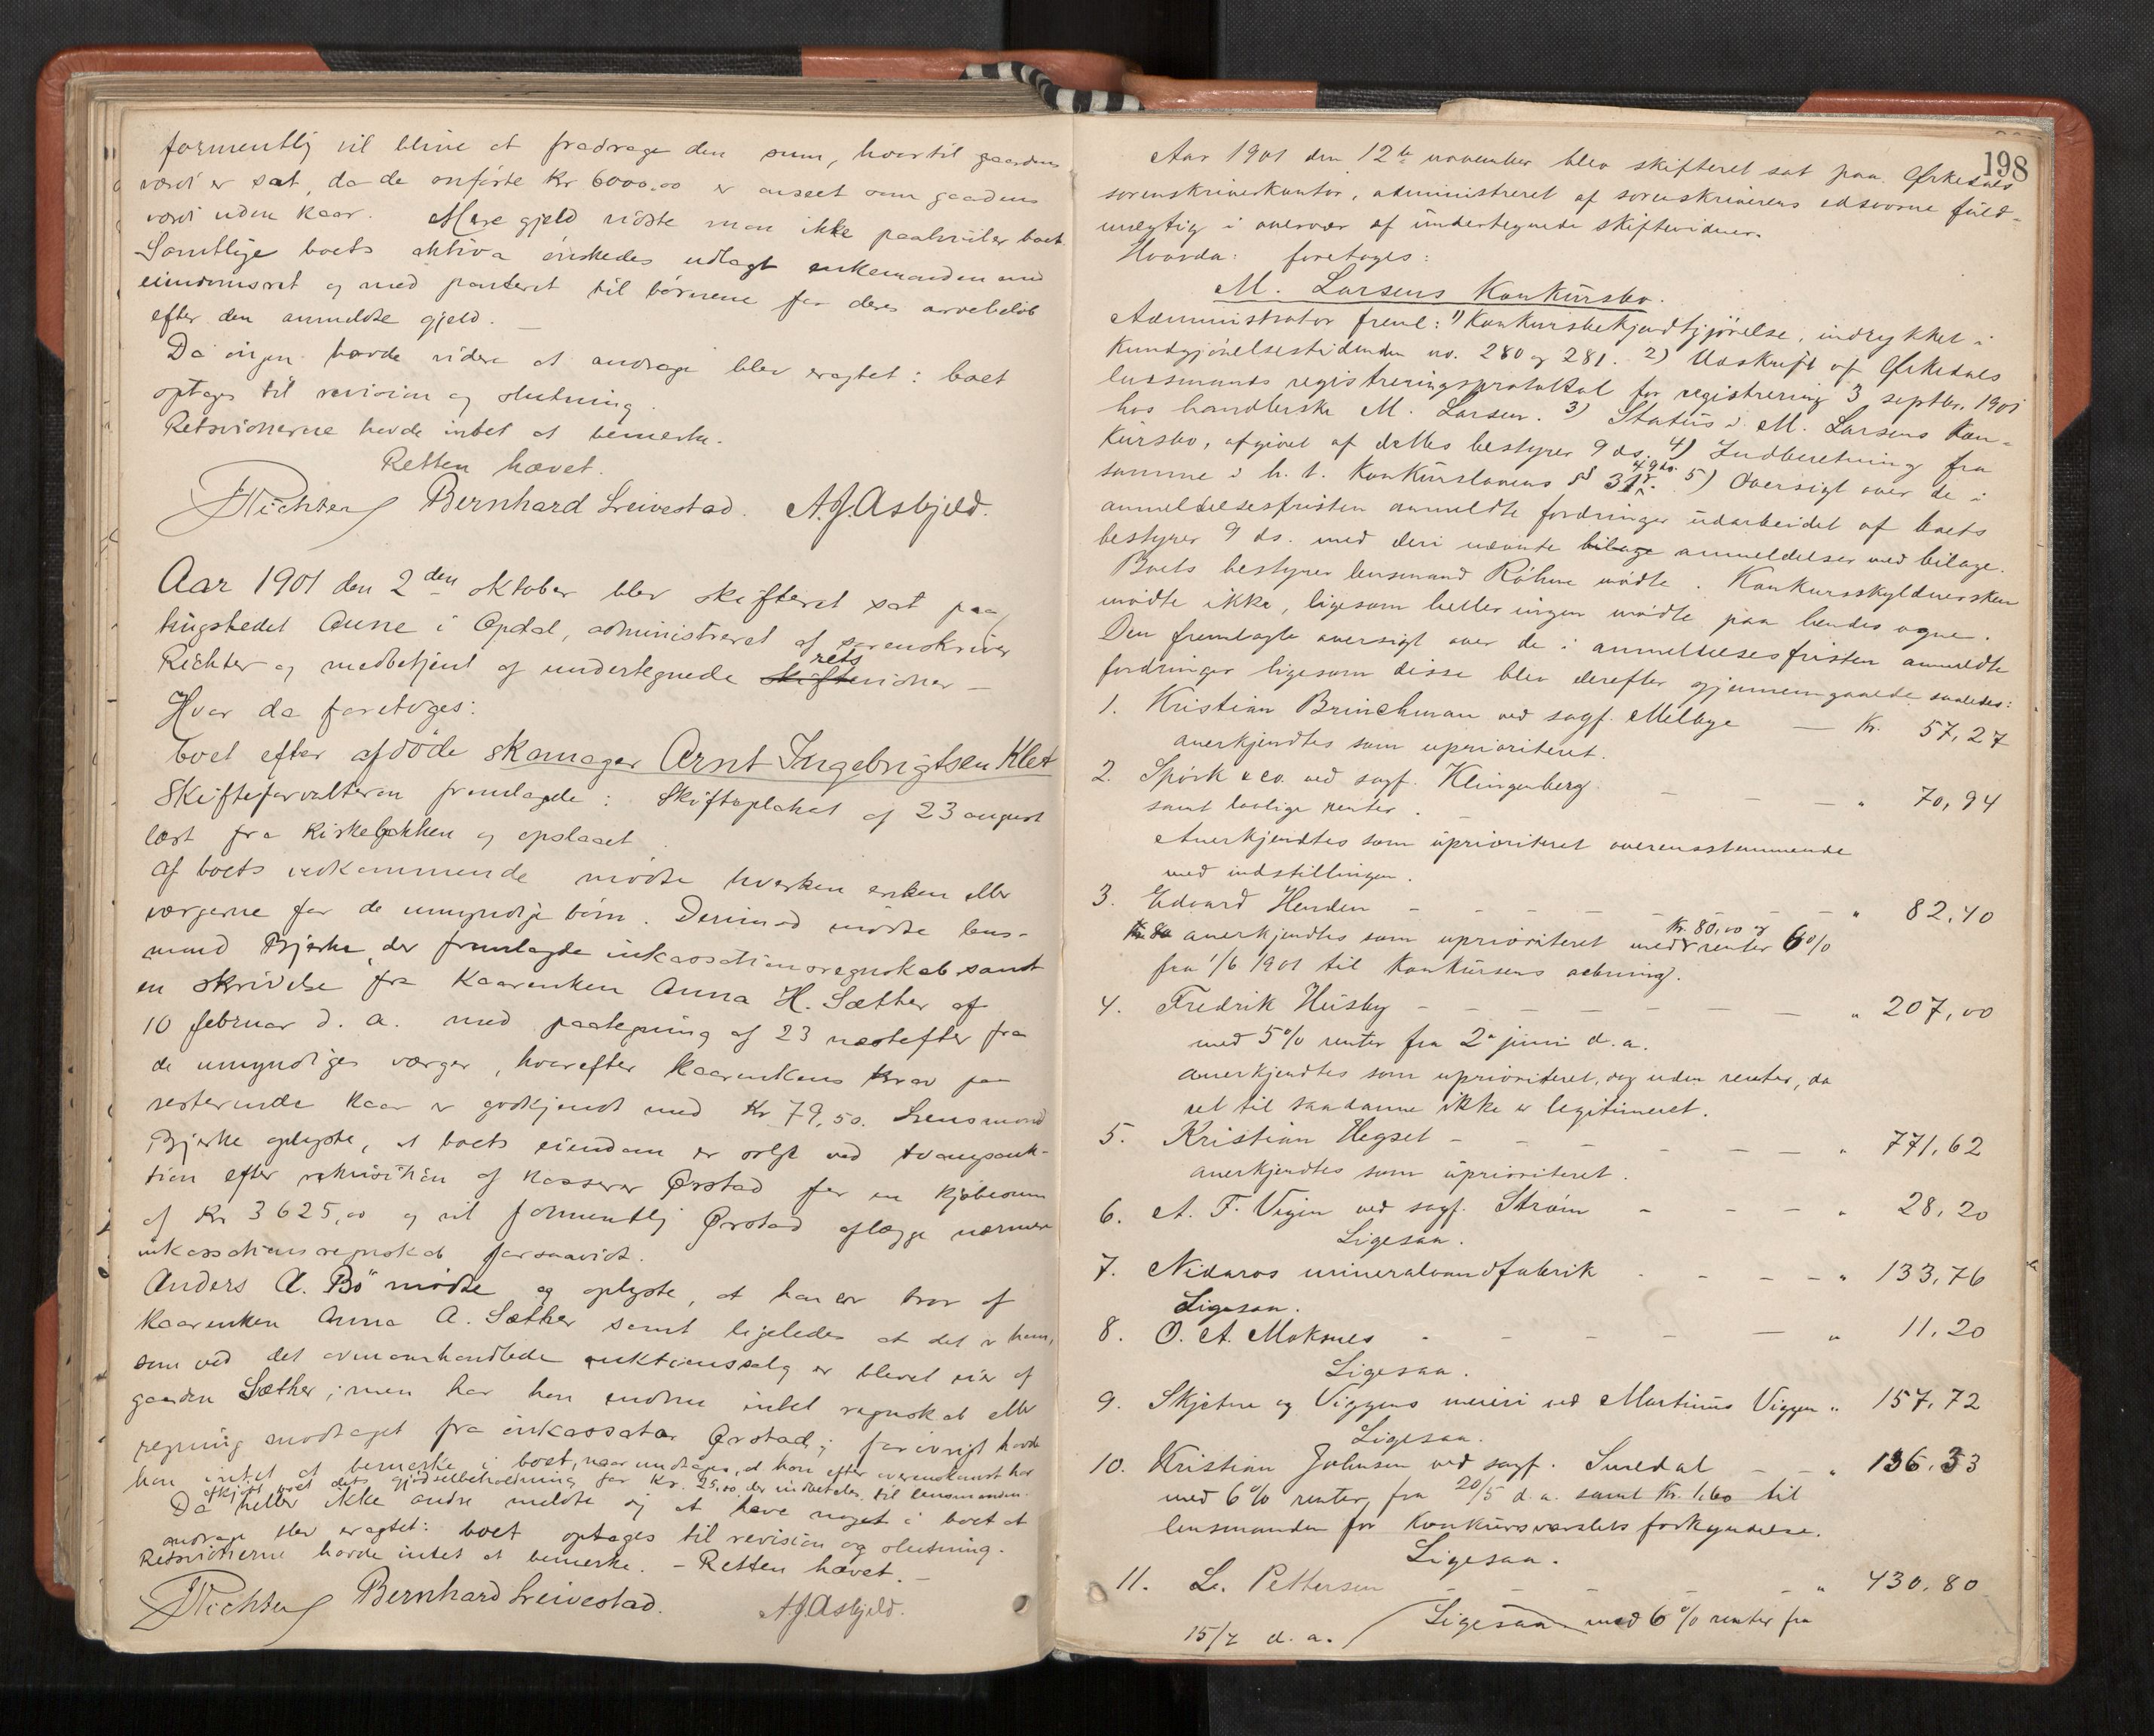 formentlig vil blive at fradrage den sum, hvortil gaardens
værdi er sat, da de anførte Kr 6000,00 er anseet som gaardens
værdi uden kaar. Mere gjeld vidste man ikke paahviler boet.
Samtlige boets aktiva ønskedes udlagt enkemanden med
eiendomsret og med panteret til børnene for deres arvebeløb
efter den anmeldte gjeld. —
Da ingen havde videre at andrage blev eragtet: boet
optages til revision og slutning.
Retsvidnerne havde intet at bemerke.
Retten hævet.
Richter Bernhard Leivestad. A.J. Asbjeld.
Aar 1901 den 2den oktober blev skifteret sat paa
tingstedet Aune i Opdal, administreret af sorenskriver
Richter og medbetjent af undertegnede skifte rets vidner —
Hvor da foretoges:
boet efter afdøde skomager Arnt Ingebrigtsen Klet
Skifteforvalteren fremlagde: Skifteplakat af 23 august
læst fra kirkebakken og opslaaet.
Af boets vedkommende mødte hverken enken eller
værgerne for de umyndige børn. Derimod mødte lens-
mand Bjerke, der fremlagde inkassationsregnskab samt
en skrivelse fra Kaarenken Anna H. Sæther af
10 februar d. a. med paategning af 23 næstefter fra
de umyndiges værger, hvorefter Kaarenkens krav paa
resterende kaar er godkjendt med Kr 79,50. Lensmand
Bjerke oplyste, at boets eiendom er solgt ved tvangsauk-
tion efter rekvisition af kasserer Ørstad for en kjøbesum
af Kr 3625,00 og vil formentlig Ørstad aflægge nærmere
inkassationsregnskab forsaavidt.
Anders A. Bö mødte og oplyste, at han er bror af
Kaarenken Anna A. Sæther samt ligeledes at det er ham,
som ved det ovenomhandlede auktionssalg er blevet eier af
gaarden Sæther; men har han endnu intet regnskab eller
regning modtaget fra inkassator Ørstad; forøvrigt havde
han intet at bemerke i boet, naar undtages, at han efter overenskomst har
afkjøbt boet dets gjødselbeholdning for Kr. 25,00, der indbetales til lensmanden.
Da heller ikke andre meldte sig at have noget i boet at
andrage blev eragtet: boet optages til revision og slutning.
Retsvidnerne havde intet at bemerke. – Retten hævet. —
Richter Bernhard Leivestad. A.J. Asbjeld.
198
Aar 1901 den 12te november blev skifteret sat paa Ørkedals
sorenskriverkontor, administreret af sorenskriverens edsvorne fuld-
mægtig i overvær af undertegnede skiftevidner.
Hvorda: foretoges:
M. Larsens Konkursbo.
Administrator freml: 1) Konkursbekjendtgjørelse, indrykket i
Kundgjørelsestidenden no. 280 og 281. 2) Udskrift af Ørkedals
lensmands registreringsprotokol for registrering 3 septbr. 1901
hos handlerske M. Larsen. 3) Status i M. Larsens kon-
kursbo, afgivet af dettes bestyrer 9 ds. 4) Indberetning fra
samme i h. t. Konkurslovens § 31, 4 9 ds. 5) Oversigt over de i
anmeldelsesfristen anmeldte fordringer udarbeidet af boets
bestyrer 9 ds. med deri nævnte bilage anmeldelser med bilage.
Boets bestyrer lensmand Röhme mødte. Konkursskyldnersken
mødte ikke, ligesom heller ingen mødte paa hendes vegne.
Den fremlagte oversigt over de i anmeldelsesfristen anmeldte
fordringer ligesom disse blev derefter gjennemgaaede saaledes:
1. Kristian Brinchman ved sagf. Melbye — Kr. 57,27
anerkjendtes som uprioriteret.
2. Spörk & co. ved sagf. Klingenberg - - — " 70,94
samt lovlige renter.
Anerkjendtes som uprioriteret overensstemmende
med indstillingen.
3. Edvard Henden - - - - - - " 82,40
Kr. 80 anerkjendtes som uprioriteret med Kr. 80,00 og renter 6%
fra 1/6 1901 til konkursens aabning.
4. Fredrik Husby - - - - - - — " 207,00
med 5% renter fra 2. juni d. a.
Anerkjendtes som uprioriteret, dog uden renter, da
ret til saadanne ikke er legitimeret.
5. Kristian Hegset - - - - - — " 771,62
anerkjendtes som uprioriteret.
6. A. F. Vigen ved sagf. Strøm - - - - " 28,20
Ligesaa.
7. Nidaros mineralvandfabrik - - - - " 133,76
Ligesaa.
8. O. A. Moksnes - - - - — " 11,20
Ligesaa.
9. Skjetne og Viggens meieri ved Martinus Viggen " 157,72
Ligesaa.
10. Kristian Johnsen ved sagf. Suredal - - " 136,33
med 6% renter, fra 20/5 d. a. samt Kr. 1,60 til
lensmanden for konkursvarslets forkyndelse.
Ligesaa.
11. L. Pettersen - - - - - " 430,80
Ligesaa med 6% renter fra
15/7 d. a.